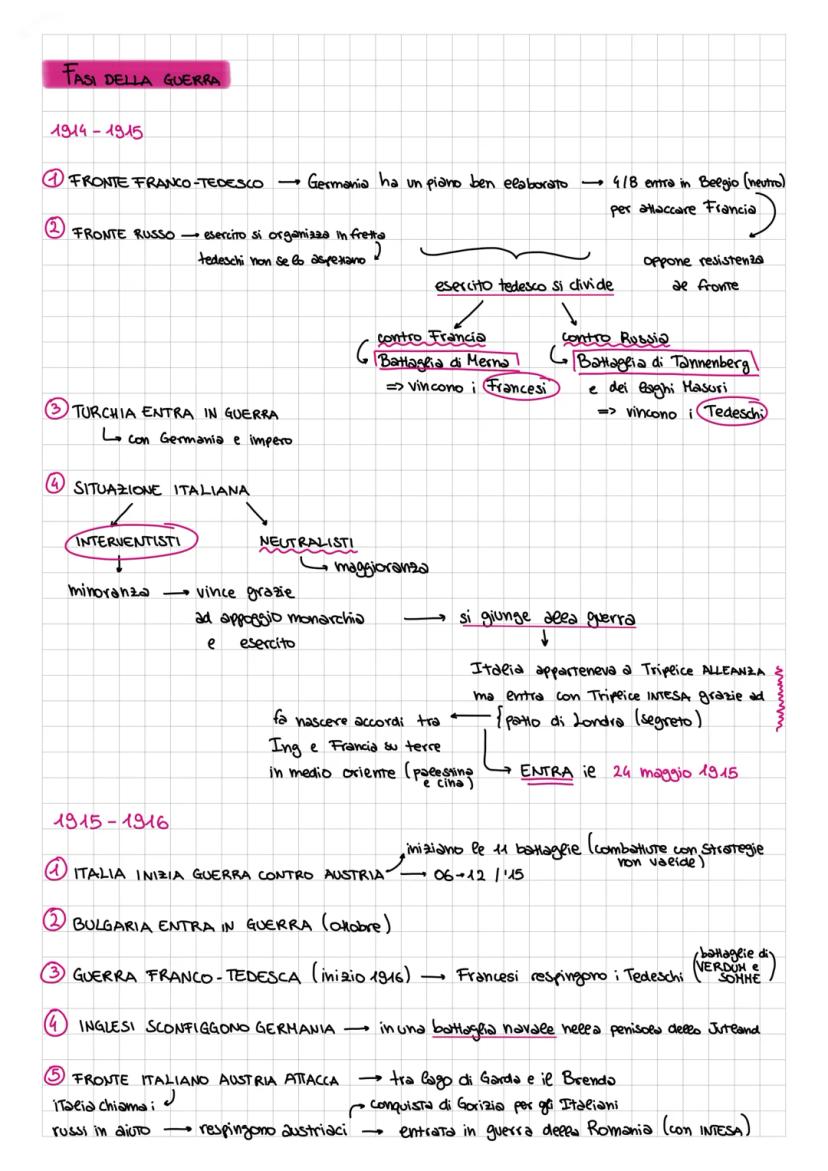 FASI DELLA GUERRA
1914 - 1915
① FRONTE FRANCO-TEDESCO → Germania ha un piano ben elaborato → 4/8 entra in Belgio (neutro)
per attaccare Francia
② FRONTE RUSSO → esercito si organizza in fretta
tedeschi non se lo aspettano
oppone resistenza
al fronte
esercito tedesco si divide
contro Francia
Battaglia di Merna
=> vincono i Francesi
contro Russia
Battaglia di Tannenberg
e dei laghi Masuri
=> vincono i Tedeschi
③ TURCHIA ENTRA IN GUERRA
↳ con Germania e impero
④ SITUAZIONE ITALIANA
INTERVENTISTI
NEUTRALISTI
↳ maggioranza
minoranza → vince grazie
ad appoggio monarchia → si giunge alla guerra
e esercito
Italia apparteneva a Triplice ALLEANZA
ma entra con Triplice INTESA grazie ad
{patto di Londra (segreto)
fa nascere accordi tra
Ing e Francia su terre
in medio oriente (palestina
e cina)
↳ ENTRA il 24 maggio 1915
1915 - 1916
① ITALIA INIZIA GUERRA CONTRO AUSTRIA → 06→12 / '15
iniziano le 11 battaglie (combattute con strategie
non valide)
② BULGARIA ENTRA IN GUERRA (ottobre)
③ GUERRA FRANCO-TEDESCA (inizio 1916) → Francesi respingono i Tedeschi (battaglie di
VERDUN e
SOMME)
④ INGLESI SCONFIGGONO GERMANIA → in una battaglia navale nella penisola dello Jutland
⑤ FRONTE ITALIANO AUSTRIA ATTACCA → tra lago di Garda e il Brenda
italia chiama i
conquista di Gorizia per gli Italiani
russi in aiuto → respingono austriaci → entrata in guerra della Romania (con INTESA)